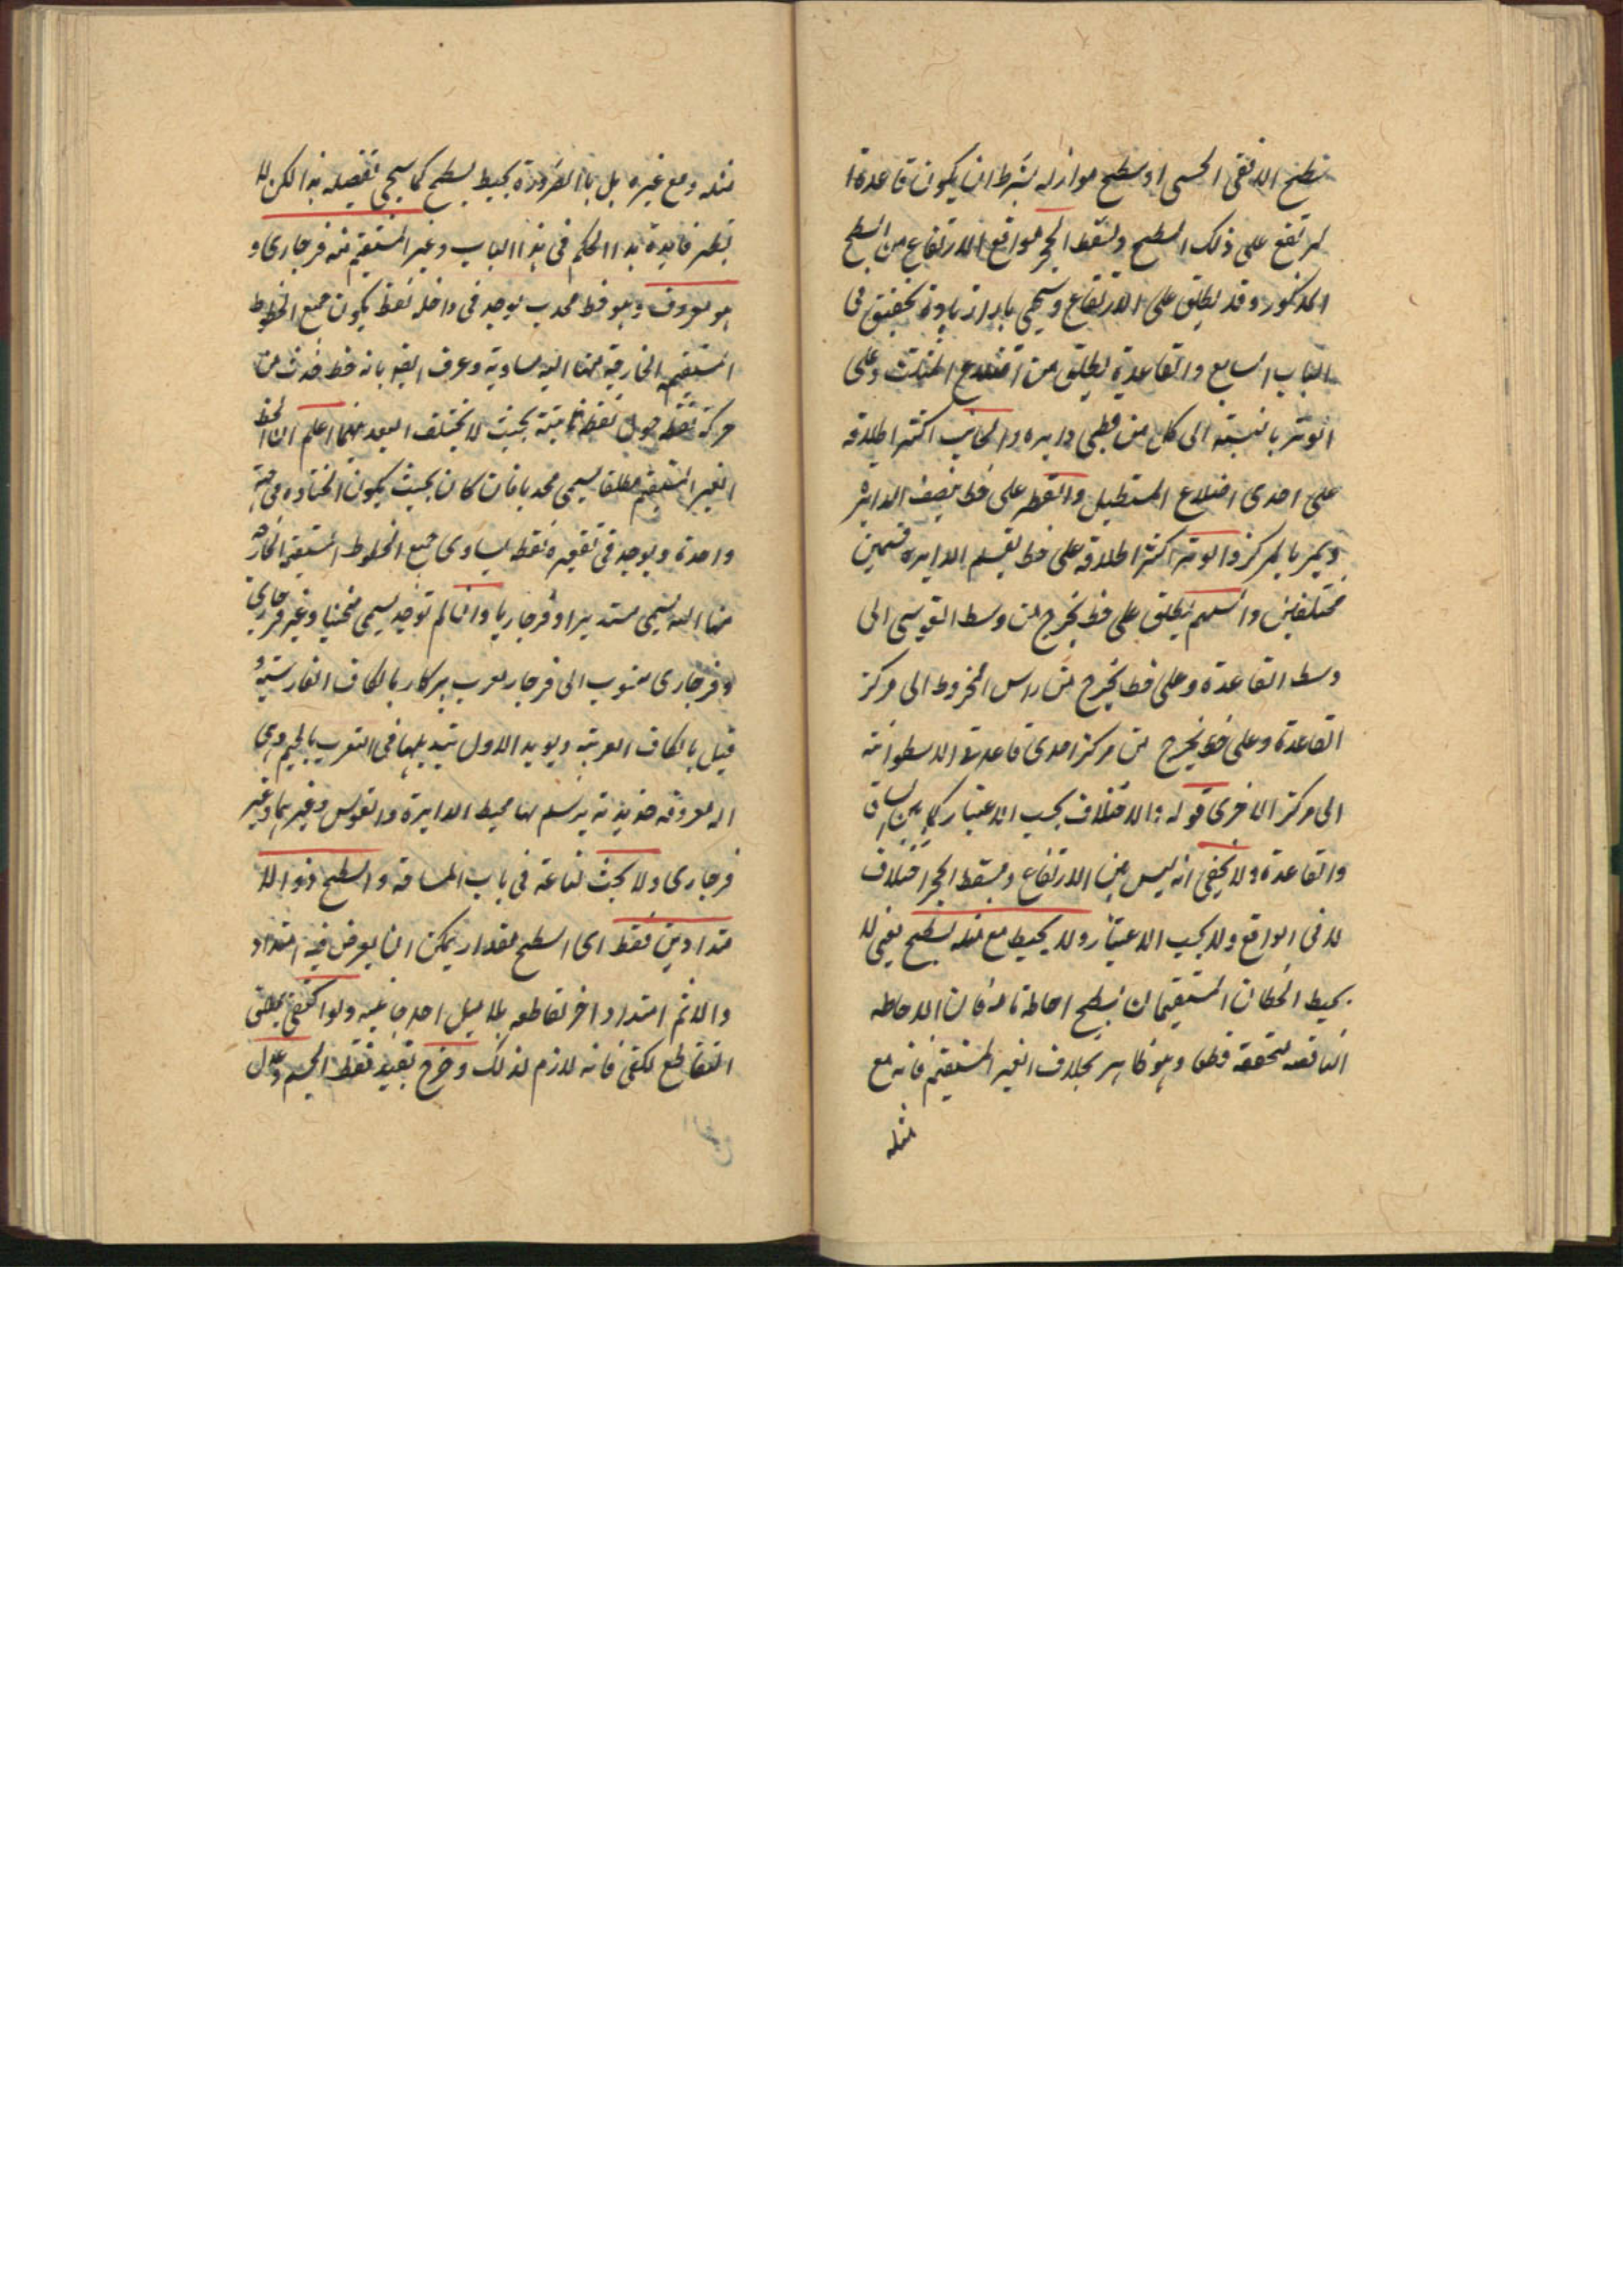 سطح الافقى الحسى او سطح مواز له بشرط ان يكون قاعدة ا
لمرتفع على ذلك السطح ومسقط الحجر موقع الارتفاع من السطح
المذكور وقد يطلق على الارتفاع وسيجى بهذا زيادة تحقيق فى
الباب السابع والقاعدة يطلق من اضلاع المثلث وعلى
الوتر بالنسبة الى كل من قطعى دايره والجانب اكثر اطلاقه
على احدى اضلاع المستطيل والقطر على خط ينصف الدايرة
ويمر بالمركز والوتر اكثر اطلاقه على خط يقسم الدايره قسمين
مختلفين والسهم يطلق على خط يخرج من وسط القوسى الى
وسط القاعدة وعلى خط يخرج من راس المخروط الى مركز
القاعدة وعلى خط يخرج من مركز احدى قاعدة الاسطوانة
الى مركز الاخرى قوله والاختلاف بحسب الاعتبار كما بين الساق
والقاعدة ولا يخفى انه ليس بين الارتفاع ومسقط الحجر اختلاف
لا فى الواقع ولا بحسب الاعتبار ولا يحيط مع مثله بسطح يعنى لا
يحيط الخطان المستقيمان بسطح احاطة تامة فان الاحاطه
الناقصه متحققه قطعا وهو ظاهر بخلاف الغير المستقيم فانه مع
مثله
مثله ومع غيره بل بالضرورة يحيط بسطح كما سيجى تفصيله هذا لكن لا
يظهر فايدة هذا الحكم فى هذا الباب وغير المستقيم منه فرجارى و
هو معروف وهو خط محدب يوجد فى داخله نقطة يكون جميع الخطوط
المستقيمه الخارجة منها اليه مساوية وعرف ايضه بانه خط حدث من
حركة نقطة حول نقطة ثابتة بحيث لا يختلف البعد بينهما اعلم ان الخط
الغير المستقيم مطلقا يسمى محدبا فان كان بحيث يكون انحناؤه فى جهة
واحدة ويوجد فى تقعيره نقطة يساوى جميع الخطوط المستقيمة الخارجة
منها اليه يسمى مستديرا وفرجاريا وان لم توجد يسمى منحنيا وغير فرجارى
وفرجارى منسوب الى فرجار معرب پركار بالكاف الفارسية و
قيل بالكاف العربية ويويد الاول تبديلها فى التعريب بالجيم وهى
اله معروفه حديدية يرسم بها محيط الدايرة والقوس وغيرهما وغير
فرجارى ولا بحث لنا عنه فى باب المساحة والسطح ذو الا
متدادين فقط اى السطح مقدار يمكن ان يعرض فيه امتداد
والا ثم امتداد اخر تقاطعه بلا ميل احد جانبيه ولو اكتفى بمطلق
التقاطع لكفى فانه لازم لذلك وخرج بقيد فقط الجسم وعلى